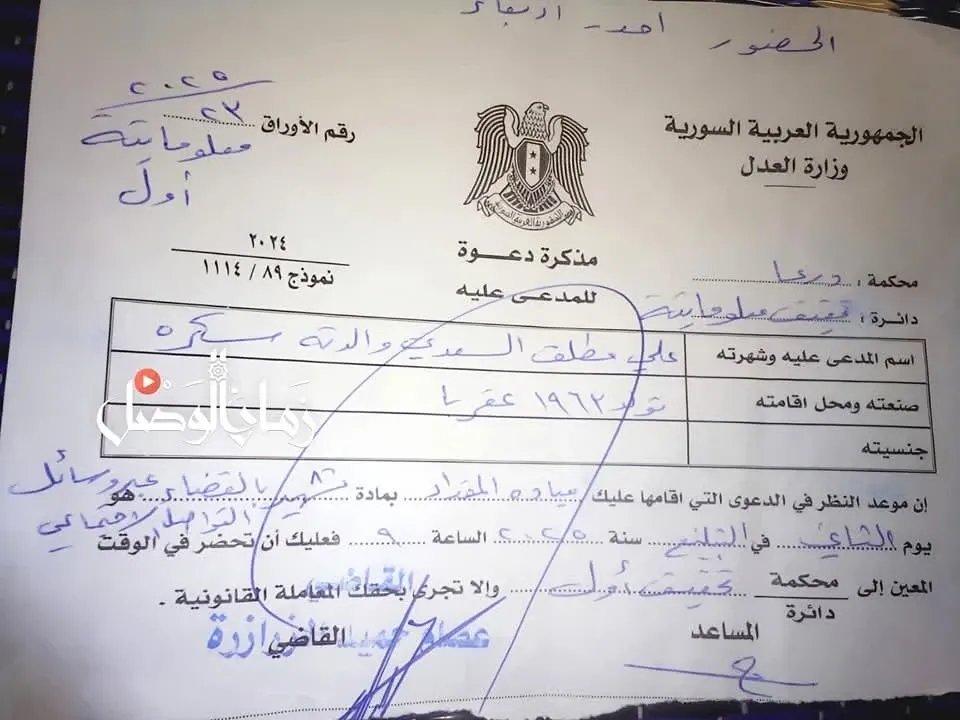 الحضور أحد أربعاء
الجمهورية العربية السورية
وزارة العدل
٢٠٢٥
رقم الأوراق ٢٣
معلوماتية
أول
مذكرة دعـــوة
للمدعى عليه
٢٠٢٤
نموذج ٨٩ / ١١١٤
محكمة : درعا
دائرة : تحقيق معلوماتية
اسم المدعى عليه وشهرته علي مطلق السعدي والدته سكره
صنعته ومحل اقامته تولد ١٩٦٢ عقربا
جنسيته
زمان الوصل
إن موعد النظر في الدعوى التي اقامها عليك ميادة المقداد بمادة تشهير بالقضاء عبر وسائل التواصل الاجتماعي هو
يوم الثاني في التبليغ سنة ٢٠٢٥ الساعة ٩ فعليك أن تحضر في الوقت
المعين إلى محكمة دائرة تحقيق أول وإلا تجرى بحقك المعاملة القانونية .
المساعد
القاضي
القاضي
عصام حميد